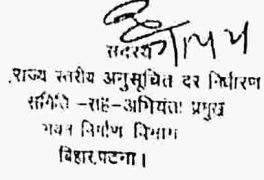 सदस्य
राज्य स्तरीय अनुसूचित दर निर्धारण
समिति -सह-अभियंता प्रमुख
भवन निर्माण विभाग
बिहार,पटना।